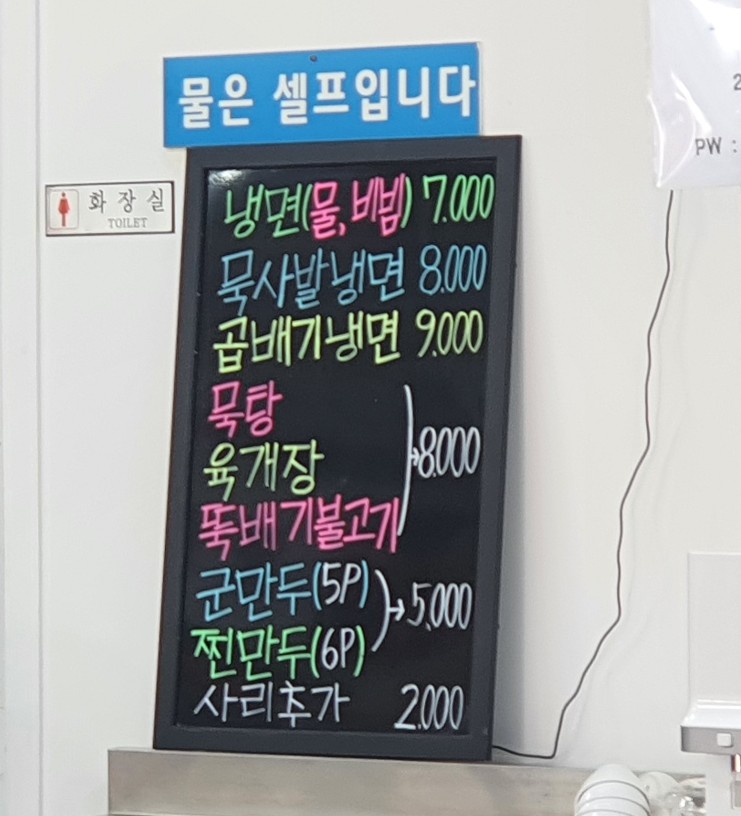 물은 셀프입니다
화장실
TOILET
PW :
냉면(물,비빔) 7.000
묵사발냉면 8.000
곱배기냉면 9.000
묵탕
육개장
뚝배기불고기
8.000
군만두(5P)
찐만두(6P)
5.000
사리추가 2.000